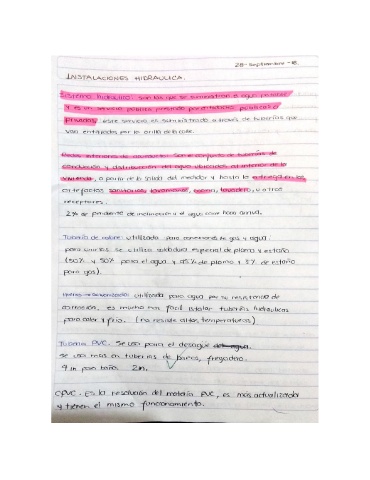 28 - Septiembre - 18.
INSTALACIONES HIDRAULICA.
Sistema hidraulico: son los que se suministran a agua potable
y es un servicio público prestado por entidades públicas o
privadas, este servicio es suministrado a traves de tuberias que
van enterradas por la orilla de la calle.
Redes interiores de alimentación: Son el conjunto de tuberias de
conducción y distribución del agua ubicadas al interior de la
vivienda, a partir de la salida del medidor y hasta la entrega en los
artefactos sanitarios, lavamanos, lavadero, u otros
receptores.
2% de pendiente de inclinación el agua
Tuberia de cobre: utilizada para conexiones de gas y agua.
para unirlas se utiliza soldadura especial de plomo y estaño
(50% y 50% para el agua y 95% de plomo y 5% de estaño
para gas).
utilizada para agua por su resistencia de
corrosion, es mucho mas facil instalar tuberias hidraulicas
para calor y frio. (no resiste altas temperaturas)
Tuberia PVC. Se usa para el desague
Se usa mas en tuberias de baños, fregadero.
4 in para baño. 2in.
CPVC. Es la resolución del material PVC, es mas actualizada
y tienen el mismo funcionamiento.